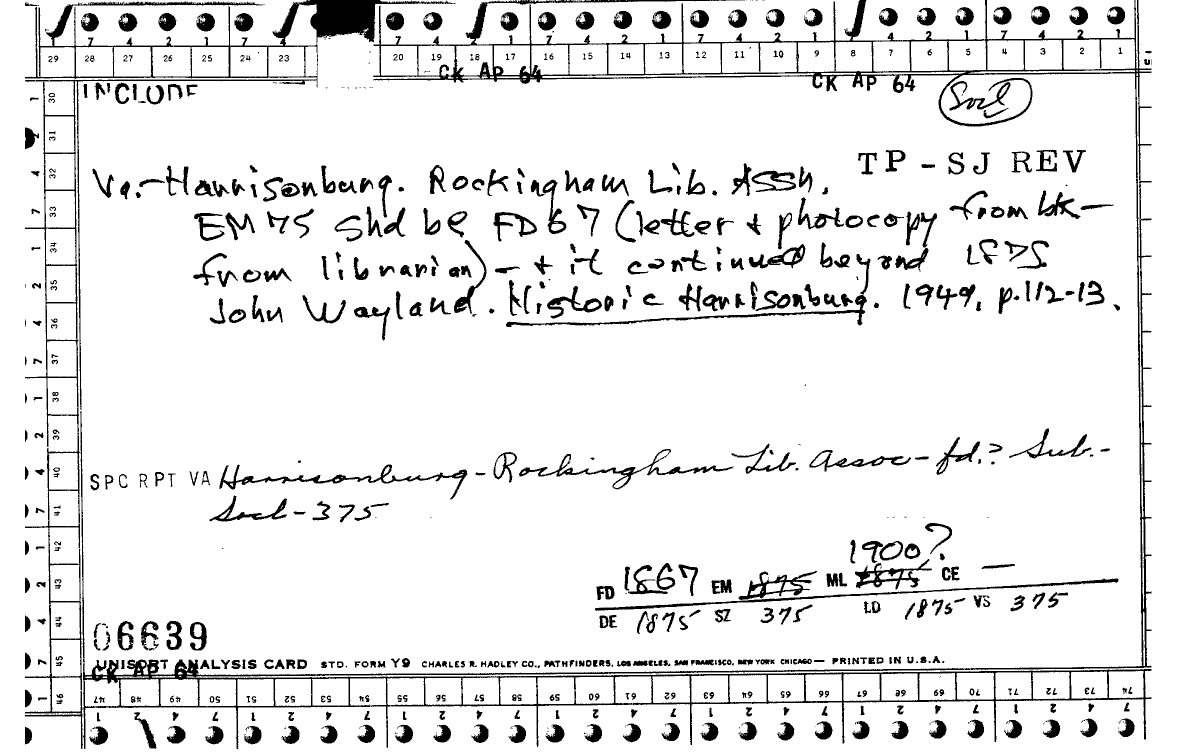 7 4 2 1 7 4 7 4 2 1 7 4 2 1 7 4 2 1 7 4 2 1
29 28 27 26 25 24 23 20 19 18 17 16 15 14 13 12 11 10 9 8 7 6 5 4 3 2 1
CK AP 64 CK AP 64
INCLUDE Socl
TP-SJ REV
Va.-Harrisonburg. Rockingham Lib. Assn.
EM 75 shd be FD 67 (letter + photocopy from bk-
from librarian) - + it continued beyond 1875
John Wayland. Historic Harrisonburg. 1949, p.112-13.
SPC RPT VA Harrisonburg-Rockingham Lib. Assoc-fd.? Sub.-
Socl-375
1900?
FD 1867 EM 1875 ML 1875 CE —
DE 1875 SZ 375 LD 1875 VS 375
06639
UNISORT ANALYSIS CARD STD. FORM Y9 CHARLES R. HADLEY CO., PATHFINDERS, LOS ANGELES, SAN FRANCISCO, NEW YORK CHICAGO — PRINTED IN U.S.A.
CK AP 64
47 48 49 50 51 52 53 54 55 56 57 58 59 60 61 62 63 64 65 66 67 68 69 70 71 72 73 74
1 2 4 7 1 2 4 7 1 2 4 7 1 2 4 7 1 2 4 7 1 2 4 7
30 31 32 33 34 35 36 37 38 39 40 41 42 43 44 45 46